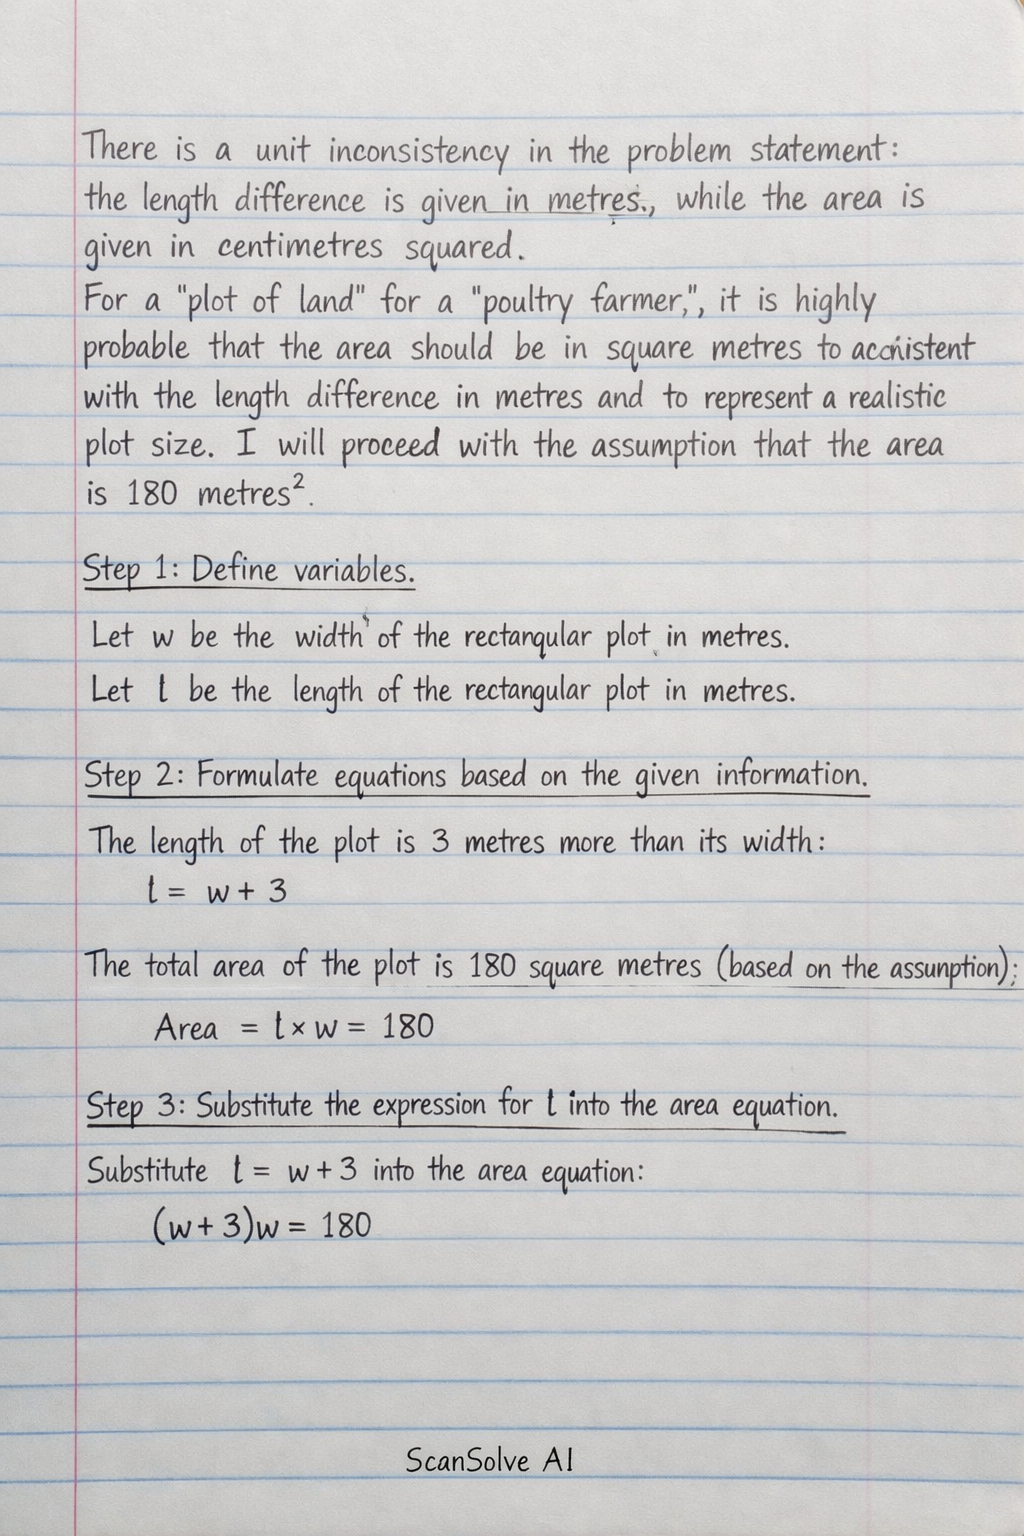 There is a unit inconsistency in the problem statement:
the length difference is given in metres., while the area is
given in centimetres squared.
For a "plot of land" for a "poultry farmer,", it is highly
probable that the area should be in square metres to
with the length difference in metres and to represent a realistic
plot size. I will proceed with the assumption that the area
is 180 metres².
Step 1: Define variables.
Let w be the width of the rectangular plot in metres.
Let l be the length of the rectangular plot in metres.
Step 2: Formulate equations based on the given information.
The length of the plot is 3 metres more than its width:
l = w + 3
The total area of the plot is 180 square metres (based on the assunption);
Area = l × w = 180
Step 3: Substitute the expression for l into the area equation.
Substitute l = w + 3 into the area equation:
(w + 3)w = 180
ScanSolve AI